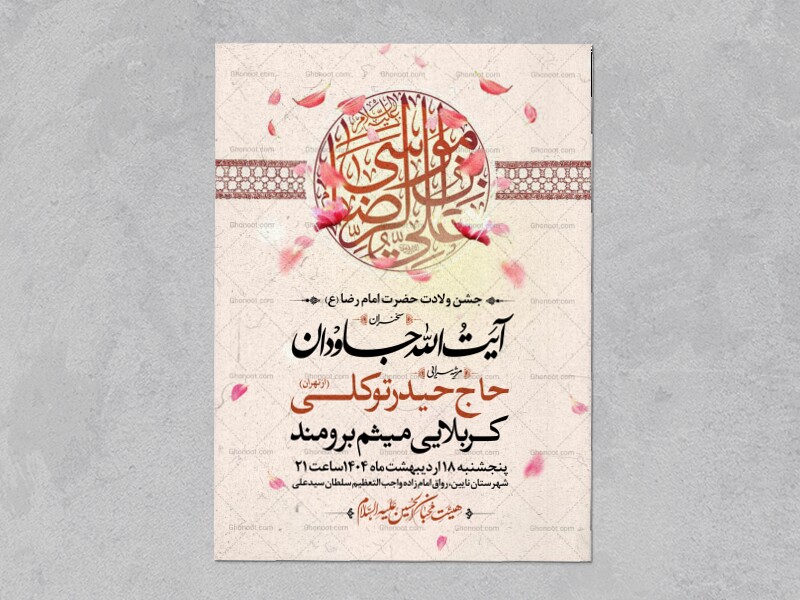 علیه السلام
علی بن موسی الرضا
جشن ولادت حضرت امام رضا (ع)
سخنران
آیت الله جاودان
مرثیه سرایی
حاج حیدر توکلی (از تهران)
کربلایی میثم برومند
پنجشنبه ۱۸ اردیبهشت ماه ۱۴۰۴ ساعت ۲۱
شهرستان نایین، رواق امام زاده واجب التعظیم سلطان سید علی
هیئت محبان الحسین علیه السلام
Ghonoot.com